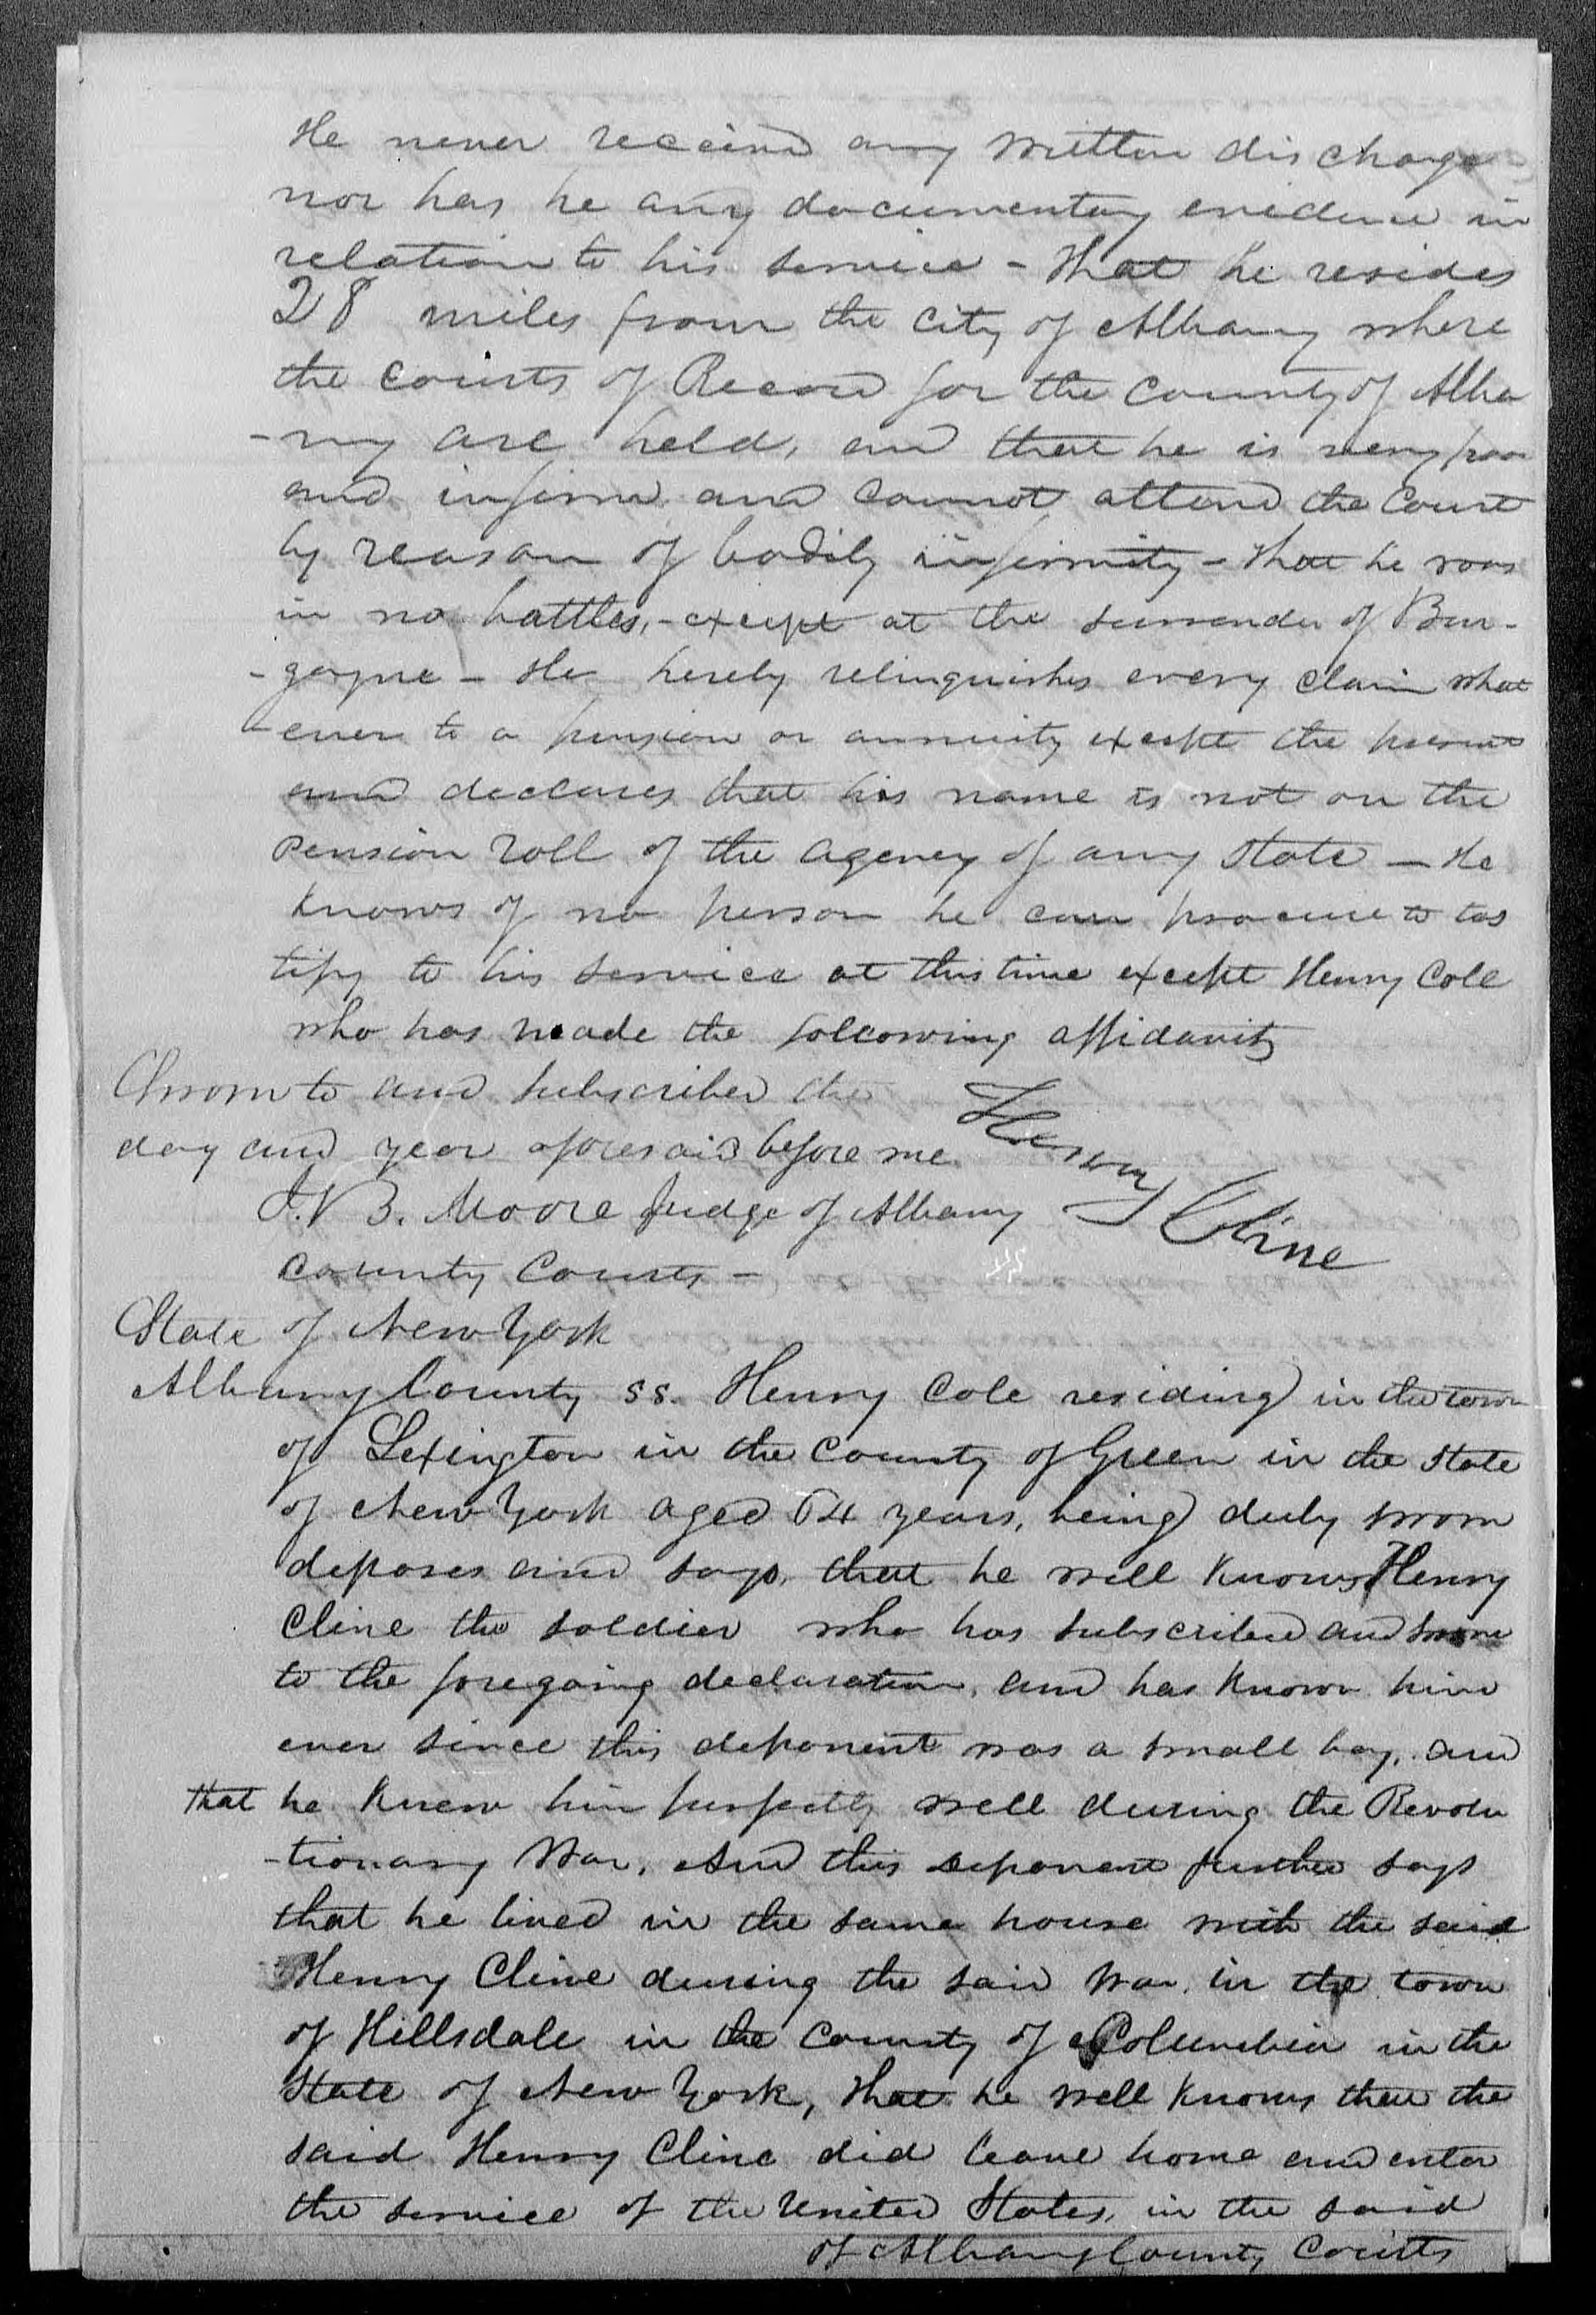 He never received any written discharge
nor has he any documentary evidence in
relation to his service - that he resides
28 miles from the city of Albany where
the courts of Record for the county of Alba
-ny are held, and that he is very poor
and infirm and cannot attend the Court
by reason of bodily infirmity - that he was
in no battles, - except at the surrender of Bur-
- goyne - He hereby relinquishes every claim what
- ever to a pension or annuity except the present
and declares that his name is not on the
pension roll of the agency of any state - He
knows of no person he can procure to tes
tify to his service at this time except Henry Cole
who has made the following affidavit
Sworn to and subscribed the
day and year aforesaid before me
Henry Cline
J. V B. Moore Judge of Albany
County Courts -
State of New York
Albany County ss. Henry Cole residing in the town
of Lexington in the County of Green in the State
of New York aged 64 years, being duly sworn
deposes and says, that he well knows Henry
Cline the soldier who has subscribed and sworn
to the foregoing declaration, and has known him
ever since this deponent was a small boy, and
that he knew him perfectly well during the Revolu
-tionary War. And this deponent further says
that he lived in the same house with the said
Henry Cline during the said War, in the town
of Hillsdale in the County of Columbia in the
State of New York, that he well knows that the
said Henry Cline did leave home and enter
the service of the United States, in the said
of Albany County Courts